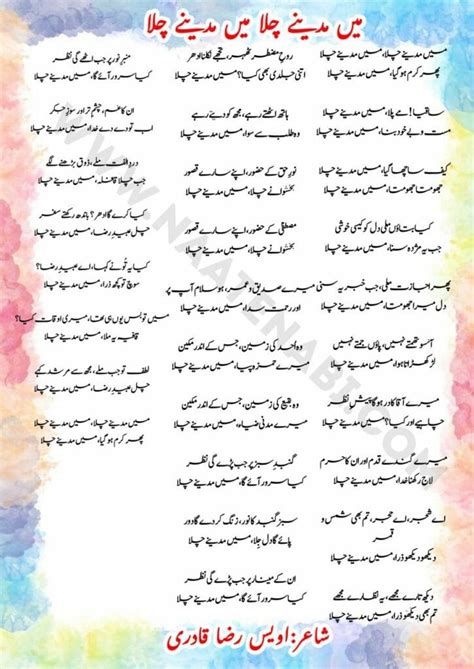 میں مدینے چلا میں مدینے چلا
میں مدینے چلا، میں مدینے چلا
پھر کرم ہو گیا، میں مدینے چلا
ساقیا! مے پلا، میں مدینے چلا
مست و بے خود بنا، میں مدینے چلا
کیف سا چھا گیا، میں مدینے چلا
جھومتا جھومتا، میں مدینے چلا
کیا بتاؤں ملی دل کو کیسی خوشی
جب یہ مژدہ سنا، میں مدینے چلا
پھر اجازت ملی، جب خبر یہ سنی
دل میرا جھوما، میں مدینے چلا
آنسو تھمتے نہیں، پاؤں جمتے نہیں
لڑکھڑاتا ہوا، میں مدینے چلا
میرے آقا کا در ہو گا پیش نظر
چاہیے اور کیا؟ میں مدینے چلا
میرے گندے قدم اور ان کا حرم
لاج رکھنا خدا، میں مدینے چلا
اے شجر، اے حجر، تم بھی شمس و
قمر
دیکھو دیکھو ذرا، میں مدینے چلا
دیکھیں تارے مجھے، یہ نظارے مجھے
تم بھی دیکھو ذرا، میں مدینے چلا
روحِ مضطر ٹھہر، تجھے نکلنا ادھر
اتنی جلدی بھی کیا؟ میں مدینے چلا
ہاتھ اٹھتے رہے، مجھ کو دیتے رہے
وہ طلب سے سوا، میں مدینے چلا
نورِ حق کے حضور، اپنے سارے قصور
بخشوانے چلا، میں مدینے چلا
مصطفٰی کے حضور، اپنے سارے قصور
بخشوانے چلا، میں مدینے چلا
میرے صدیق و عمر، ہو سلام آپ پر
اور رحمت سدا، میں مدینے چلا
وہ احد کی زمین، جس کے اندر مکین
میرے حمزہ پیا، میں مدینے چلا
وہ بقیع کی زمین، جس کے اندر مکین
میرے مدنی ضیاء، میں مدینے چلا
گنبدِ سبز پر جب پڑے گی نظر
کیا سرور آئے گا، میں مدینے چلا
سبز گنبد کا نور، زنگ کر دے گا دور
پائے گا دل جِلا، میں مدینے چلا
ان کے مینار پر جب پڑے گی نظر
کیا سرور آئے گا، میں مدینے چلا
منبرِ نور پر جب اٹھے گی نظر
کیا سرور آئے گا، میں مدینے چلا
ان کا غم، چشمِ تر اور سوزِ جگر
اب تو دے دے خدا، میں مدینے چلا
دردِ الفت ملے، ذوق بڑھنے لگے
جب چلا قافلہ، میں مدینے چلا
کیا کرے گا ادھر؟ باندھ رختِ سفر
چل عبیدِ رضا، میں مدینے چلا
کیا یہ تُو نے کہا، اے عبیدِ رضا
سوچ تو کچھ ذرا، میں مدینے چلا
میں تو بس یوں ہی تھا، میری اوقات کیا؟
قافیہ یہ ملا، میں مدینے چلا
لطف تو جب ملے، مجھ سے مرشد کہے
چل عبیدِ رضا، میں مدینے چلا
میں مدینے چلا، میں مدینے چلا
پھر کرم ہو گیا، میں مدینے چلا
شاعر: اویس رضا قادری
WWW.NAATENABI.COM